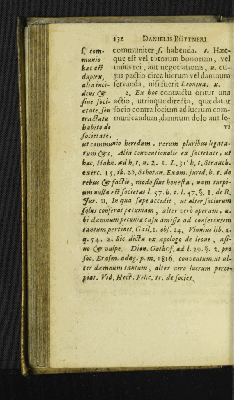 132 DANIELIS PÜTTNERI
f. com- communiter s. habenda. 1. Hæc-
munio que est vel rerum bonorum, vel
hæc est unius rei, aut negotiationis,
duplex, pactio circa lucrum vel damnum
alia inci-
dens & 2. Ex hoc contractu oritur una
sine soci- actio, utrinque directa, quæ datur
etate, sin socio contra socium ad lucrum com-
tractatu municandum, damnum dolo aut le-
habito de vi
societate.
ut communio heredum, rerum pluribus legata-
rum &c. Alia conventionalis ex societate, ut
hæc, Hahn. ad h. t. n. 2. Strauch.
exerc. 15. th. 23. Schotan. Exam. jurid. de
rebus & factis, modo sint honesta, nam turpi-
um nulla est societas l. 57. h. t. l. 47. §. 1. de R.
Jur. 11. In qua sæpe accidit, ut alter sociorum
solus conferat pecuniam, alter verò operam,
bi damnum pecuniæ casu amissæ ad conferentem
tantum pertinet, Gail. 2. obs. 24, Vinnius lib. 1.
q. 54. 2. hic dicta ex apologo de leone, asi-
no & vulpe. Dion. Gothofr. ad l. 29. §. 2. pro
soc. Erasm. adag. p. m. 1816. conventum, ut al-
ter damnum tantum, alter verò lucrum præci-
piat. Vid. tit. de societ.